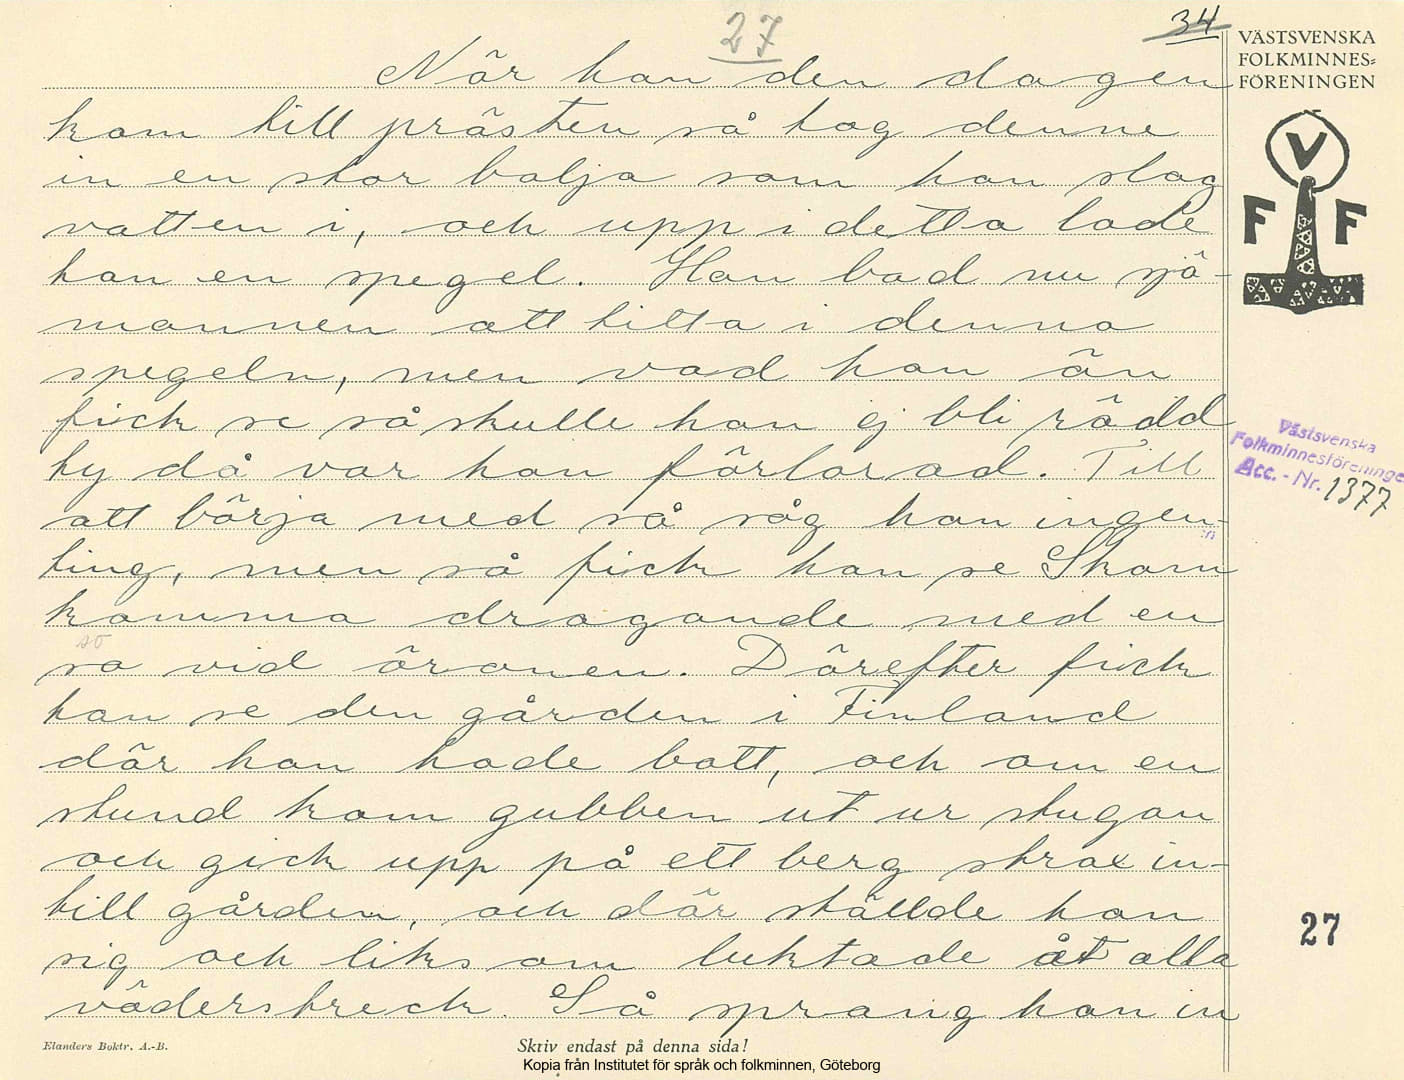 27
34
VÄSTSVENSKA
FOLKMINNES=
FÖRENINGEN
V
F F
När han den dagen
kom till prästen så tog denne
in en stor balja som han slog
vatten i, och upp i detta lade
han en spegel. Han bad nu sjö-
mannen att titta i denna
spegeln, men vad han än
fick se så skulle han ej bli rädd
ty då var han förlorad. Till
att börja med så såg han ingen-
ting, men så fick han se Skam
komma dragande med en
so
sa vid öronen. Därefter fick
han se den gården i Finland
där han hade bott, och om en
stund kom gubben ut ur stugan
och gick upp på ett berg strax in-
till gården, och där ställde han
sig och liksom luktade åt alla
väderstreck. Så sprang han in
Västsvenska
Folkminnesföreninge
Acc. - Nr. 1377
27
Elanders Boktr. A.-B.
Skriv endast på denna sida!
Kopia från Institutet för språk och folkminnen, Göteborg